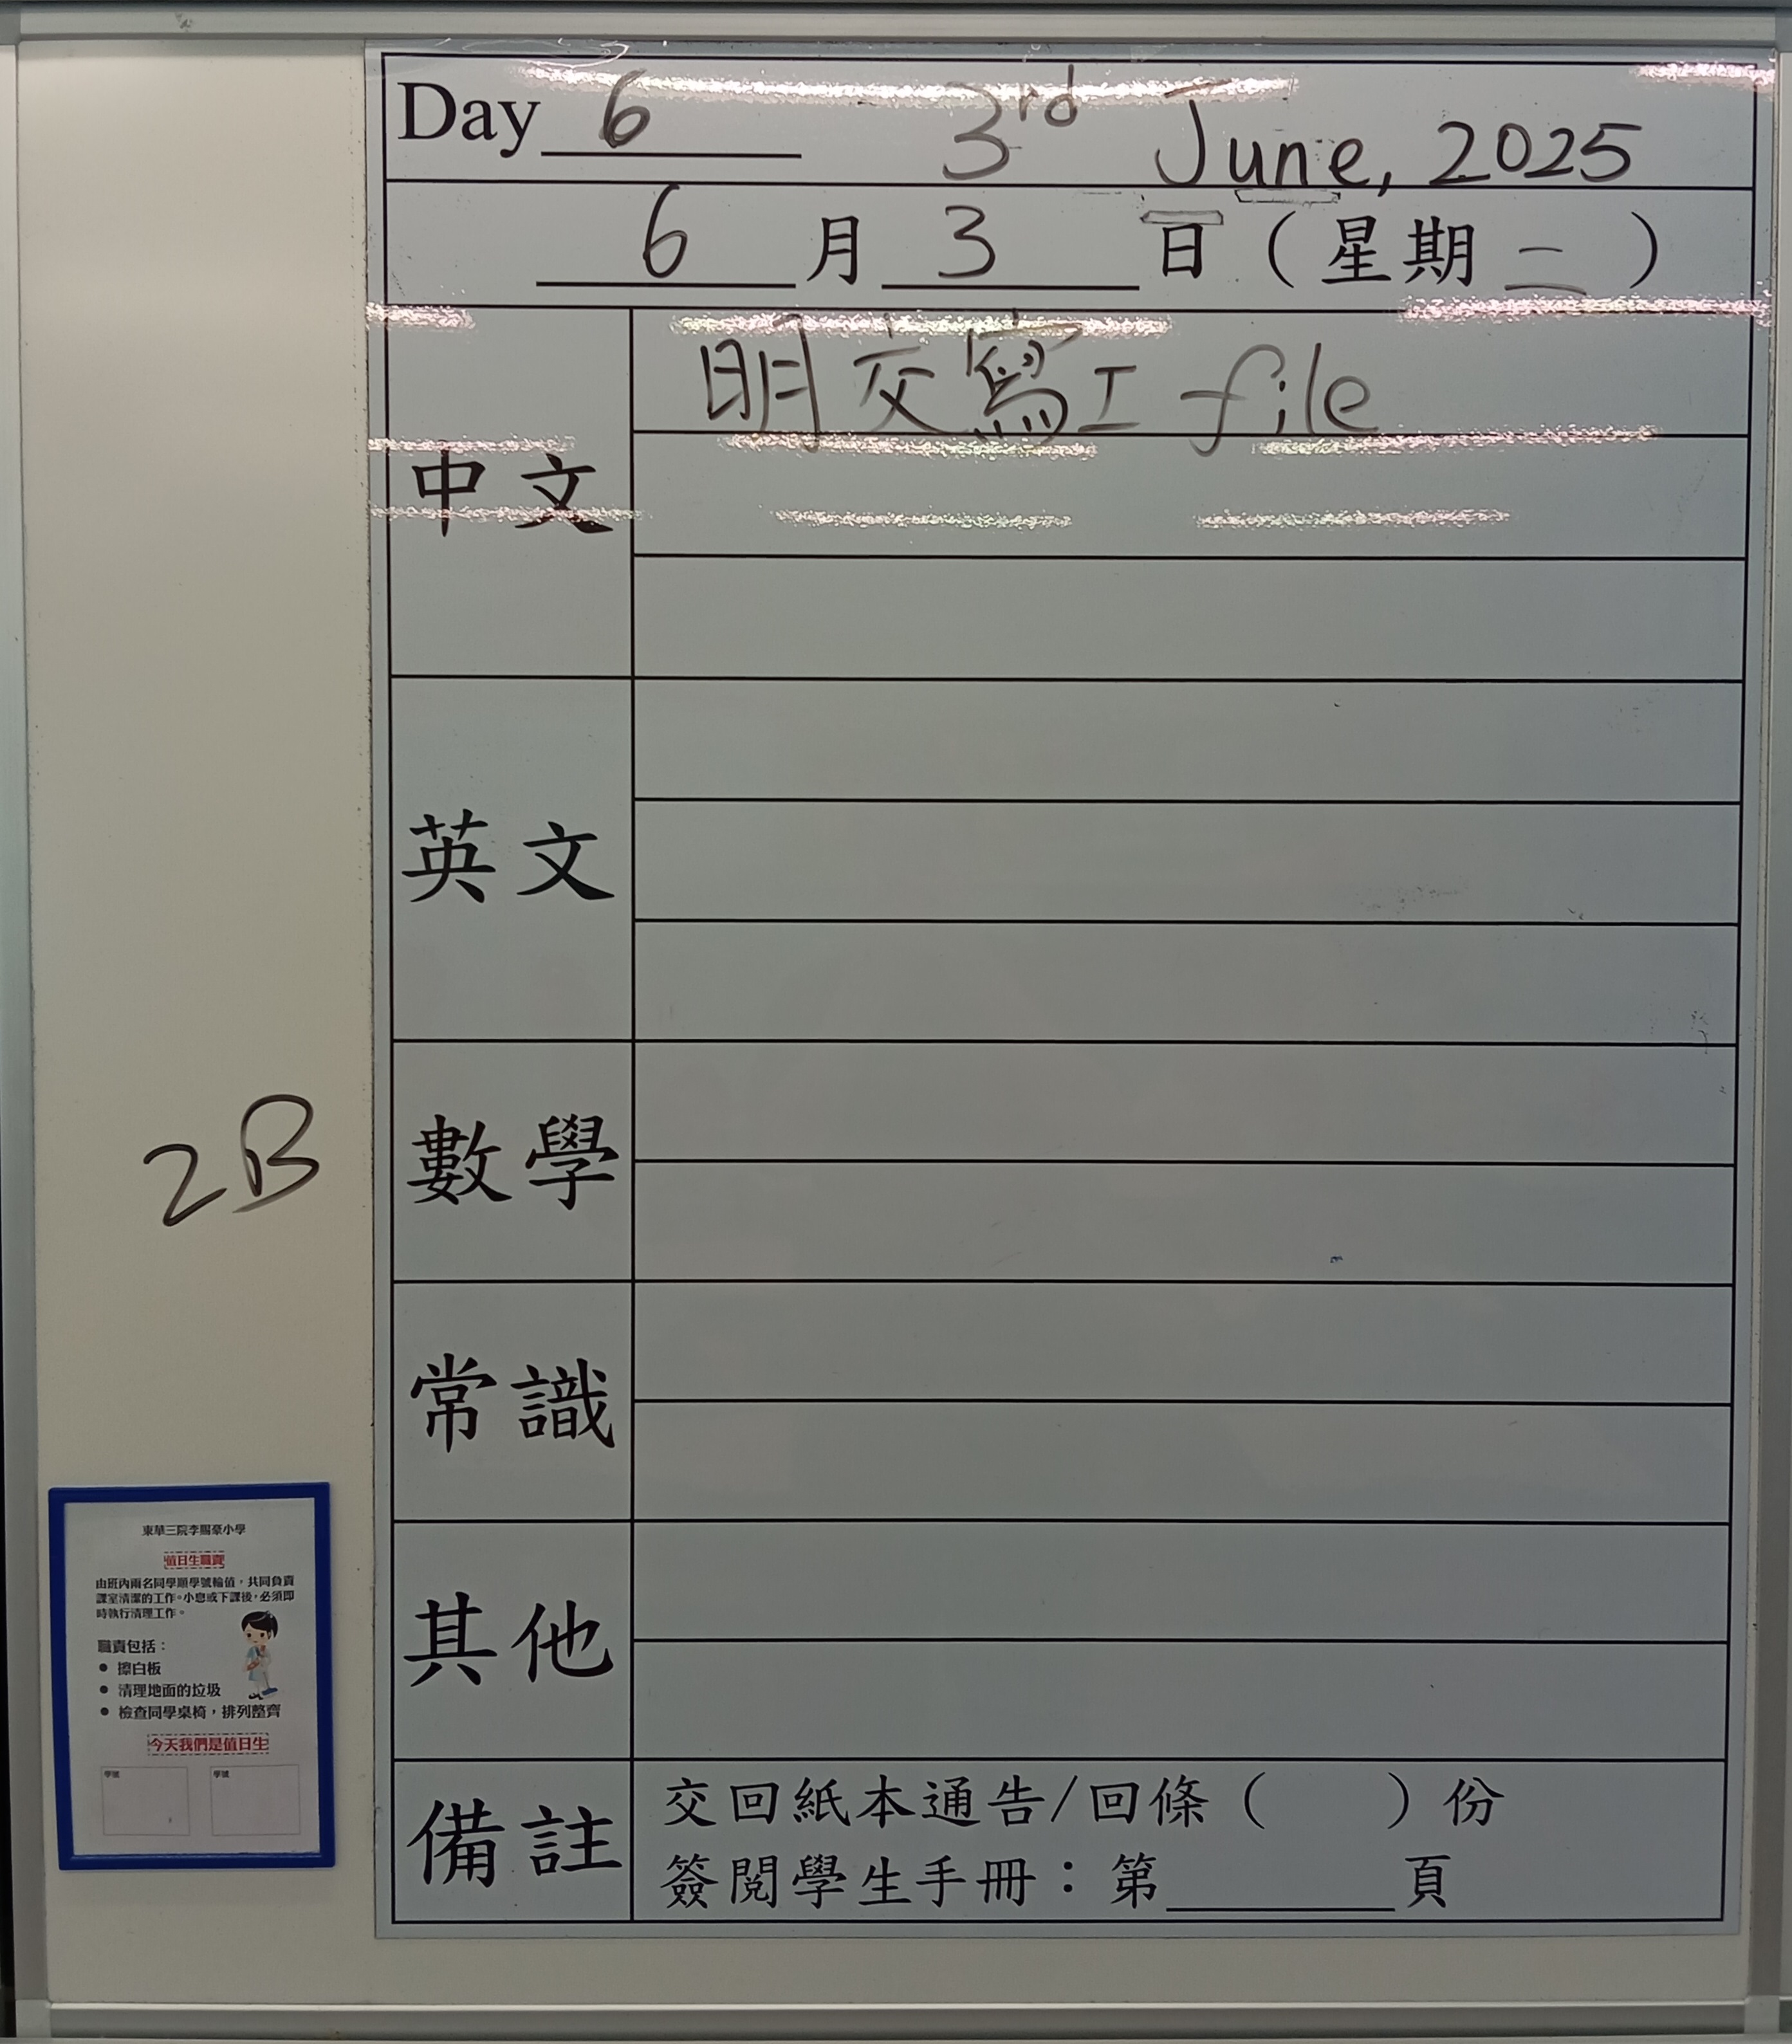 Day 6 3rd June, 2025
6 月 3 日 ( 星期 二 )
中文
明交寫工 file
英文
數學
常識
其他
備註
交回紙本通告/回條 ( ) 份
簽閱學生手冊：第______頁
2B
東華三院李賜豪小學
值日生職責
由班內兩名同學順學號輪值，共同負責
課室清潔的工作。小息或下課後，必須即
時執行清理工作。
職責包括：
• 擦白板
• 清理地面的垃圾
• 檢查同學桌椅，排列整齊
今天我們是值日生
學號 學號